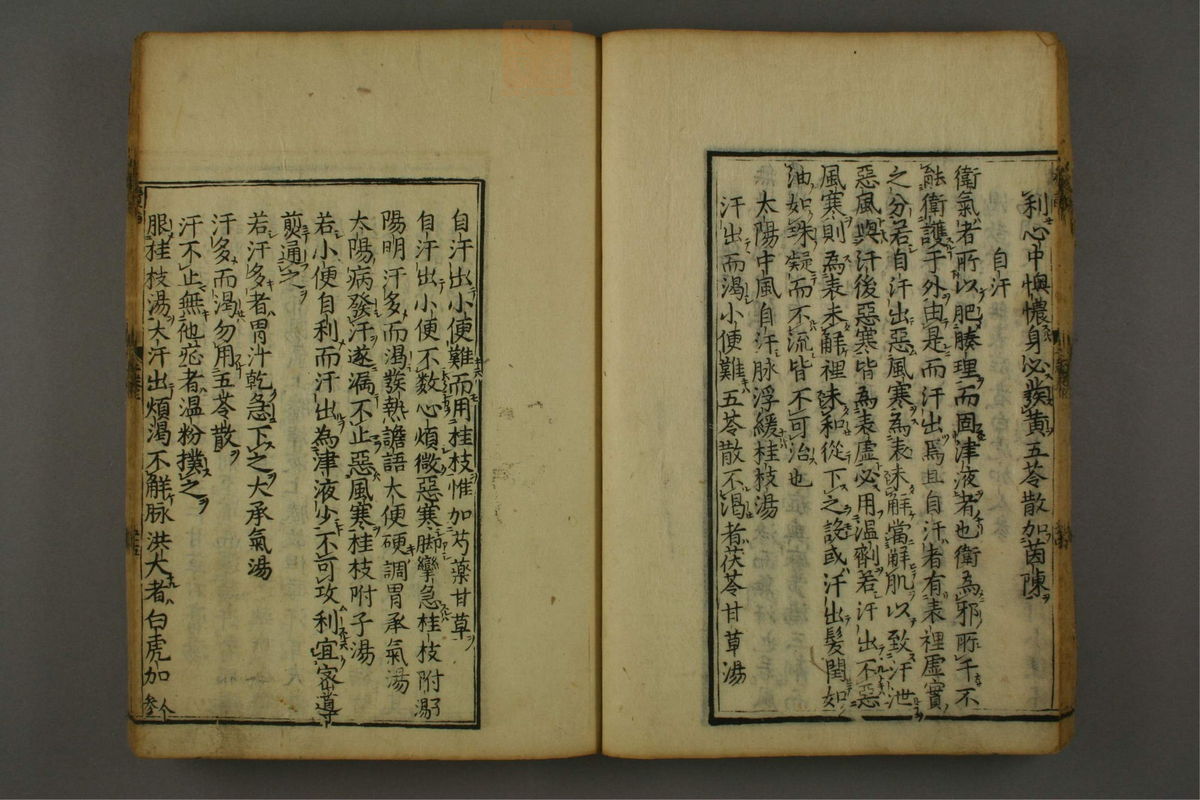 利心中懊憹身必発黄五苓散加茵陳
自汗
衛氣者所以肥腠理而固津液者也衛為邪所干不
能衛護于外由是而汗出焉且自汗者有表裡虚實
之分若自汗出惡風寒為表未解當解肌以致汗泄
惡風與汗後惡寒皆為表虚必用温劑若汗出不惡
風寒則為表未解裡未和從下之設或汗出髪閏如
油如珠凝而不流皆不可治也
太陽中風自汗脉浮緩桂枝湯
汗出而渇小便難五苓散不渇者茯苓甘草湯
自汗出小便難而用桂枝惟加芍藥甘草
自汗出小便不数心煩微惡寒脚攣急桂枝附子湯
陽明汗多而渇發熱譫語大便硬調胃承氣湯
太陽病發汗遂漏不止惡風寒桂枝附子湯
若小便自利而汗出為津液少不可攻利宜密導
煎通之
若汗多者胃汁乾急下之大承氣湯
汗多而渇勿用五苓散
汗不止無他症者温粉撲之
服桂枝湯大汗出煩渇不解脉洪大者白虎加人参